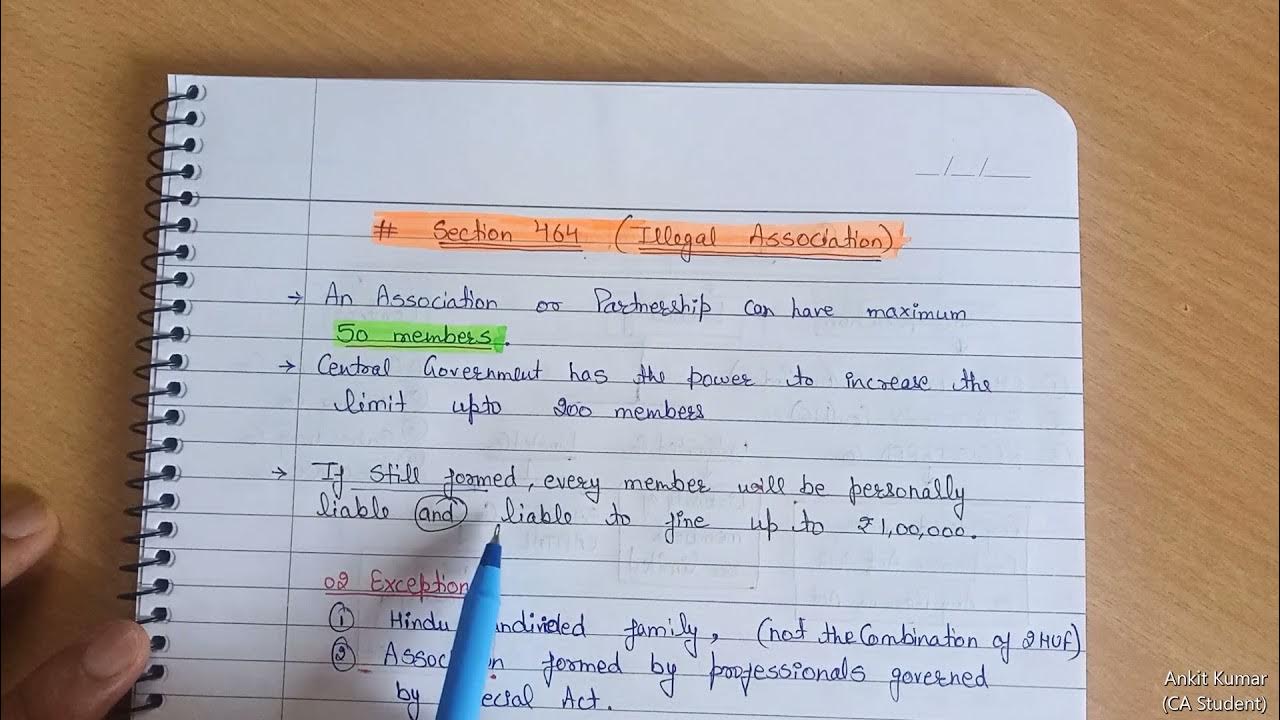 __/__/____
# Section 464 (Illegal Association)
→ An Association or Partnership can have maximum
50 members.
→ Central Government has the power to increase the
limit upto 200 members
→ If still formed, every member will be personally
liable and liable to fine up to ₹1,00,000.
02 Exception
① Hindu undivided family, (not the Combination of 2 HUF)
② Assoc n formed by professionals governed
by ecial Act.
Ankit Kumar
(CA Student)